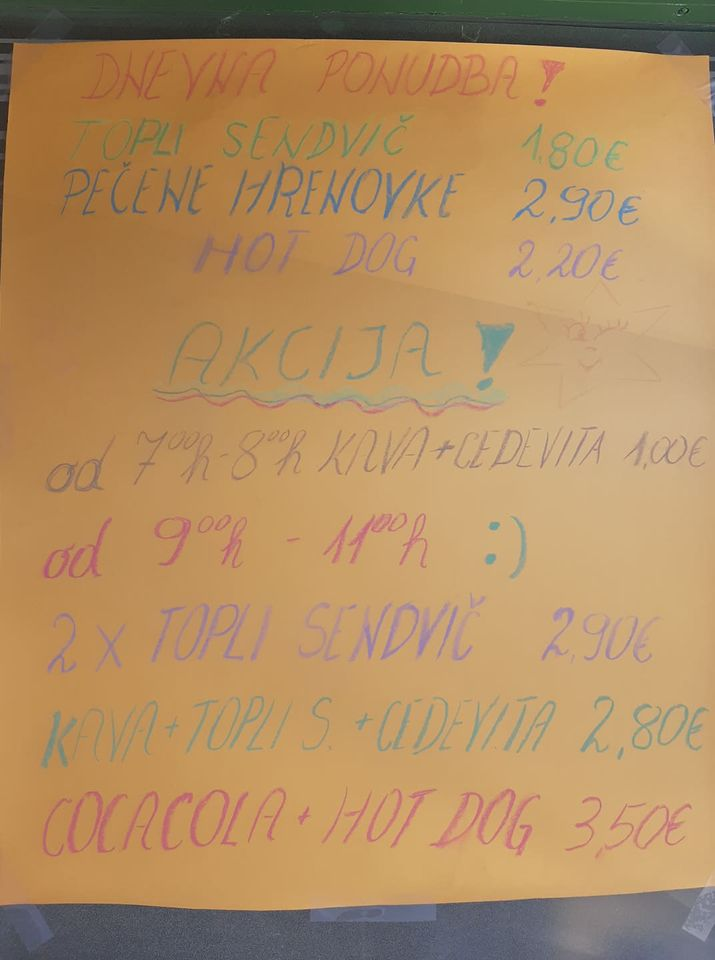 DNEVNA PONUDBA!
TOPLI SENDVIČ 1.80€
PEČENE HRENOVKE 2,90€
HOT DOG 2,20€
AKCIJA!
od 7⁰⁰h-8⁰⁰h KAVA+CEDEVITA 1,00€
od 9⁰⁰h - 11⁰⁰h :)
2 X TOPLI SENDVIČ 2,90€
KAVA+TOPLI S. +CEDEVITA 2,80€
COCACOLA+HOT DOG 3,50€